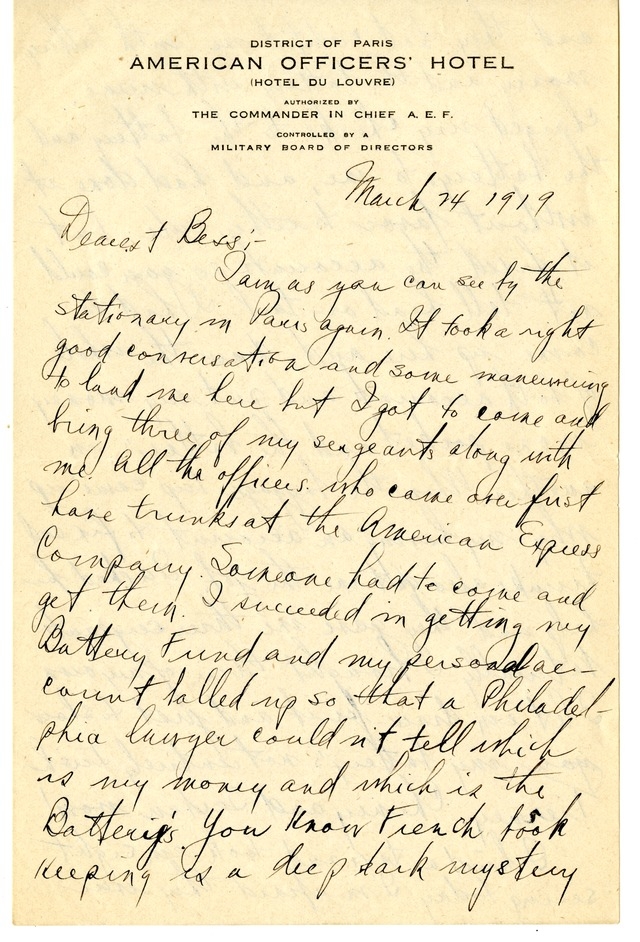 DISTRICT OF PARIS
AMERICAN OFFICERS' HOTEL
(HOTEL DU LOUVRE)
AUTHORIZED BY
THE COMMANDER IN CHIEF A. E. F.
CONTROLLED BY A
MILITARY BOARD OF DIRECTORS
March 24 1919
Dearest Bess;-
I am as you can see by the
stationary in Paris again. It took a right
good conversation and some maneuvering
to land me here but I got to come and
bring three of my sergeants along with
me. All the officers who came over first
have trunks at the American Express
Company. Someone had to come and
get them. I succeeded in getting my
Battery Fund and my personal ac-
count balled up so that a Philadel-
phia lawyer couldn't tell which
is my money and which is the
Battery's. You know French book
keeping is a deep dark mystery